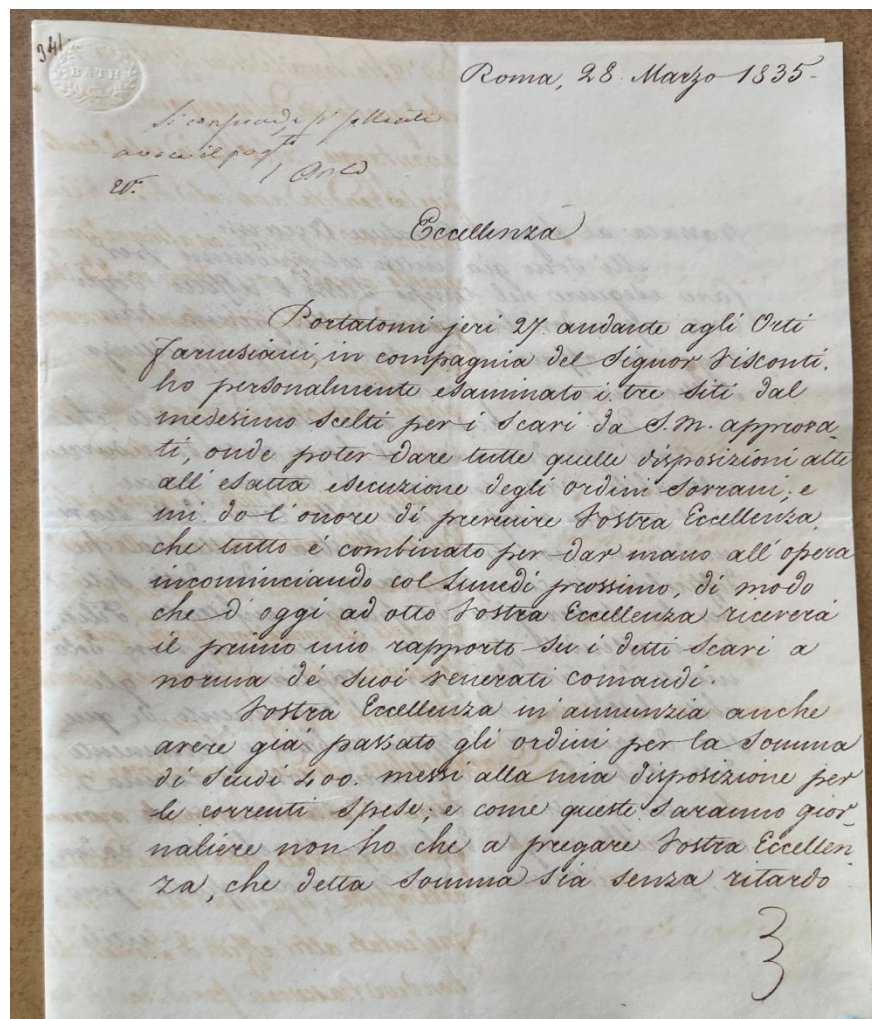 341.
BATH
Roma, 28. Marzo 1835-
Si
avsca il
Eccellenza
Portatomi jeri 27. andante agli Orti
Farnesiani, in compagnia del Signor Visconti.
ho personalmente esaminato i tre siti dal
medesimo scelti per i scavi da S.M. approva-
ti, onde poter dare tutte quelle disposizioni atte
all'esatta esecuzione degli ordini Sovrani; e
mi do l'onore di prevenire Vostra Eccellenza
che tutto é combinato per dar mano all'opera
incominciando col Lunedi prossimo, di modo
che d'oggi ad otto Vostra Eccellenza riceverá
il primo mio rapporto su i detti scavi a
norma dé suoi venerati comandi.
Vostra Eccellenza m'annunzia anche
avere giá passato gli ordini per la Somma
di Scudi 400. messi alla mia disposizione per
le correnti spese; e come queste saranno gior-
naliere non ho che a pregare Vostra Eccellen-
za, che detta Somma sia senza ritardo